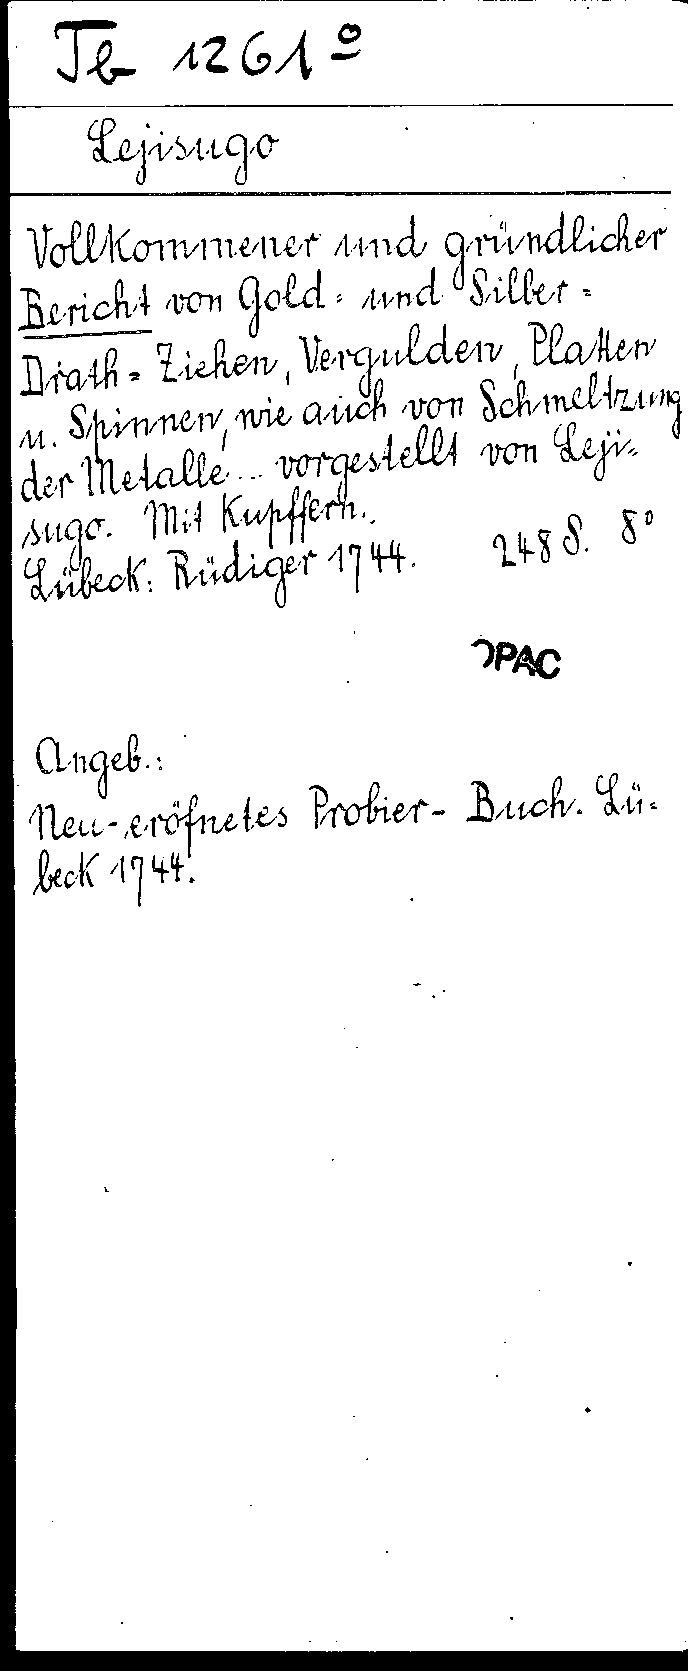 Tb 1261º
Lejisugo
Vollkommener und gründlicher
Bericht von Gold= und Silber=
Drath=Ziehen, Vergulden, Platten
u. Spinnen, wie auch von Schmeltzung
der Metalle... vorgestellt von Leji=
sugo. Mit Kupffern.
Lübeck: Rüdiger 1744. 248 S. 8°
OPAC
Angeb.:
Neu-eröfnetes Probier-Buch. Lü=
beck 1744.